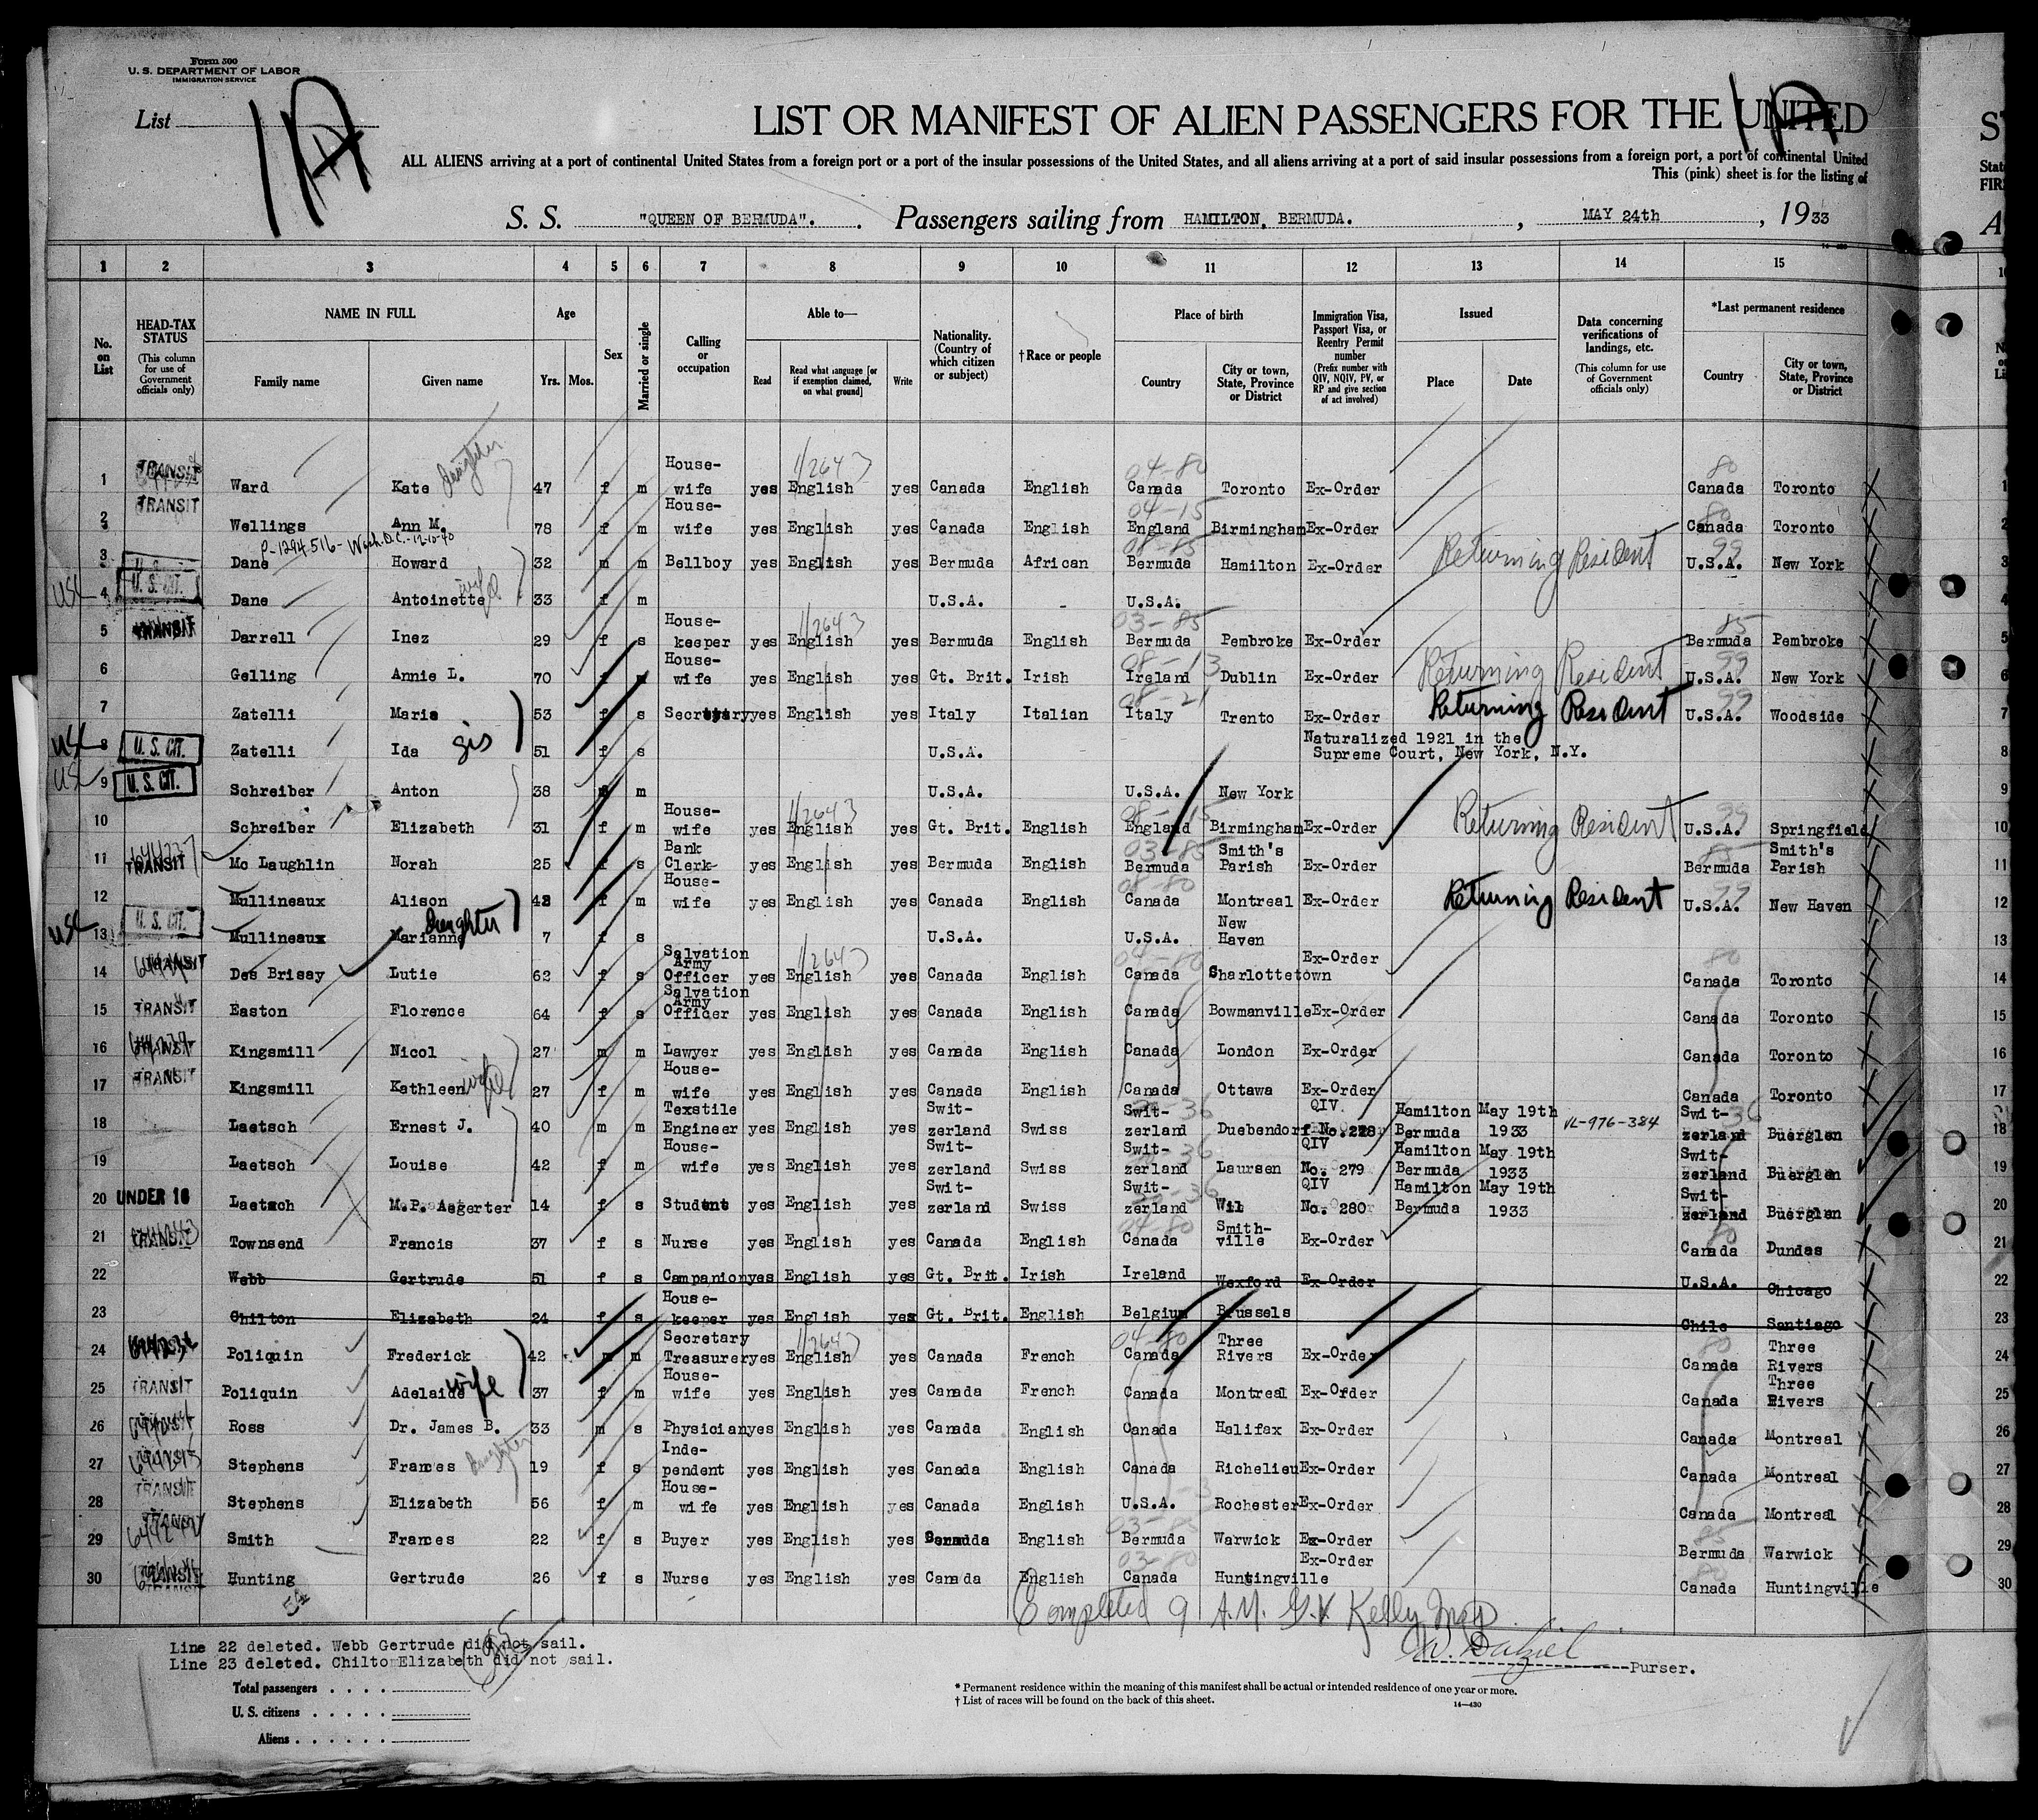 Form 500
U. S. DEPARTMENT OF LABOR
IMMIGRATION SERVICE
List 1A
LIST OR MANIFEST OF ALIEN PASSENGERS FOR THE UNITED
1A
ALL ALIENS arriving at a port of continental United States from a foreign port or a port of the insular possessions of the United States, and all aliens arriving at a port of said insular possessions from a foreign port, a port of continental United
This (pink) sheet is for the listing of
S. S. "QUEEN OF BERMUDA". Passengers sailing from HAMILTON, BERMUDA. , MAY 24th , 1933
1 2 3 4 5 6 7 8 9 10 11 12 13 14 15
No. on List
HEAD-TAX STATUS
(This column for use of Government officials only)
NAME IN FULL
Family name Given name
Age
Yrs. Mos.
Sex
Married or single
Calling or occupation
Able to—
Read Read what language [or if exemption claimed, on what ground] Write
Nationality. (Country of which citizen or subject)
†Race or people
Place of birth
Country City or town, State, Province or District
Immigration Visa, Passport Visa, or Reentry Permit number
(Prefix number with QIV, NQIV, PV, or RP and give section of act involved)
Issued
Place Date
Data concerning verifications of landings, etc.
(This column for use of Government officials only)
*Last permanent residence
Country City or town, State, Province or District
1 TRANSIT Ward Kate daughter 47 f m House-wife yes English yes Canada English Canada Toronto Ex-Order Canada Toronto 1
2 TRANSIT Wellings Ann M. 78 f m House-wife yes English yes Canada English England Birmingham Ex-Order Canada Toronto 2
P-1294516- Wash.D.C.-12-10-40
3 Dane Howard 32 m m Bellboy yes English yes Bermuda African Bermuda Hamilton Ex-Order Returning Resident U.S.A. New York 3
USC 4 U. S. CIT. Dane Antoinette wife 33 f m U.S.A. - U.S.A. 4
5 TRANSIT Darrell Inez 29 f s House-keeper yes English yes Bermuda English Bermuda Pembroke Ex-Order Bermuda Pembroke 5
6 Gelling Annie L. 70 f House-wife yes English yes Gt. Brit. Irish Ireland Dublin Ex-Order Returning Resident U.S.A. New York 6
7 Zatelli Marie 53 f s Secretary yes English yes Italy Italian Italy Trento Ex-Order Returning Resident U.S.A. Woodside 7
USC 8 U. S. CIT. Zatelli Ida sis 51 f s U.S.A. Naturalized 1921 in the Supreme Court, New York, N.Y. 8
USC 9 U. S. CIT. Schreiber Anton 38 m U.S.A. U.S.A. New York 9
10 Schreiber Elizabeth 31 f m House-wife yes English yes Gt. Brit. English England Birmingham Ex-Order Returning Resident U.S.A. Springfield 10
11 TRANSIT Mc Laughlin Norah 25 f s Bank Clerk yes English yes Bermuda English Bermuda Smith's Parish Ex-Order Bermuda Smith's Parish 11
12 Mullineaux Alison 42 f m House-wife yes English yes Canada English Canada Montreal Ex-Order Returning Resident U.S.A. New Haven 12
USC 13 U. S. CIT. Mullineaux Marianne daughter 7 f s U.S.A. U.S.A. New Haven 13
14 TRANSIT Des Brisay Lutie 62 f s Salvation Army Officer yes English yes Canada English Canada Charlottetown Ex-Order Canada Toronto 14
15 TRANSIT Easton Florence 64 f s Salvation Army Officer yes English yes Canada English Canada Bowmanville Ex-Order Canada Toronto 15
16 TRANSIT Kingsmill Nicol 27 m m Lawyer yes English yes Canada English Canada London Ex-Order Canada Toronto 16
17 TRANSIT Kingsmill Kathleen wife 27 f m House-wife yes English yes Canada English Canada Ottawa Ex-Order Canada Toronto 17
18 Laetsch Ernest J. 40 m m Texstile Engineer yes English yes Swit-zerland Swiss Swit-zerland Duebendorf QIV. No. 278 Hamilton Bermuda May 19th 1933 VL-976-384 Swit-zerland Buerglen 18
19 Laetsch Louise 42 f m House-wife yes English yes Swit-zerland Swiss Swit-zerland Laursen QIV No. 279 Hamilton Bermuda May 19th 1933 Swit-zerland Buerglen 19
20 UNDER 16 Laetsch M.P. Aegerter 14 f s Student yes English yes Swit-zerland Swiss Swit-zerland Wil QIV No. 280 Hamilton Bermuda May 19th 1933 Swit-zerland Buerglen 20
21 TRANSIT Townsend Francis 37 f s Nurse yes English yes Canada English Canada Smith-ville Ex-Order Canada Dundas 21
22 Webb Gertrude 51 f s Campanion yes English yes Gt. Brit. Irish Ireland Wexford Ex-Order U.S.A. Chicago 22
23 Chilton Elizabeth 24 f s House-keeper yes English yes Gt. Brit. English Belgium Brussels Chile Santiago 23
24 Poliquin Frederick 42 m m Secretary Treasurer yes English yes Canada French Canada Three Rivers Ex-Order Canada Three Rivers 24
25 TRANSIT Poliquin Adelaide wife 37 f m House-wife yes English yes Canada French Canada Montreal Ex-Order Canada Three Rivers 25
26 Ross Dr. James B. 33 m s Physician yes English yes Canada English Canada Halifax Ex-Order Canada Montreal 26
27 Stephens Frances daughter 19 f s Inde-pendent yes English yes Canada English Canada Richelieu Ex-Order Canada Montreal 27
28 TRANSIT Stephens Elizabeth 56 f m House-wife yes English yes Canada English U.S.A. Rochester Ex-Order Canada Montreal 28
29 TRANSIT Smith Frances 22 f s Buyer yes English yes Bermuda English Bermuda Warwick Ex-Order Bermuda Warwick 29
30 TRANSIT Hunting Gertrude 26 f s Nurse yes English yes Canada English Canada Huntingville Ex-Order Canada Huntingville 30
Completed 9 A.M. G.V. Kelly Insp
Line 22 deleted. Webb Gertrude did not sail.
Line 23 deleted. Chilton Elizabeth did not sail.
W. Dalziel Purser.
Total passengers
U. S. citizens
Aliens
* Permanent residence within the meaning of this manifest shall be actual or intended residence of one year or more.
† List of races will be found on the back of this sheet.
14—430